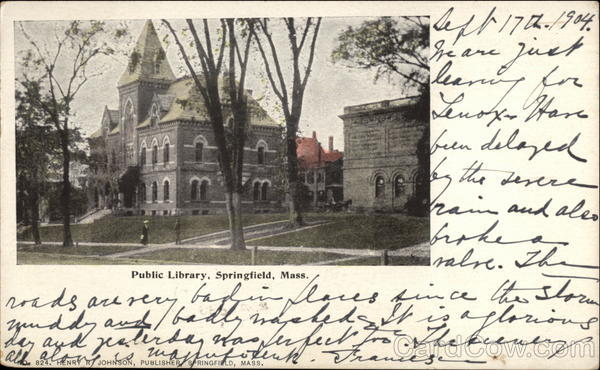 Sept 17th. 1904.
We are just
leaving for
Lenox. Have
been delayed
by the severe
rain and also
broke a
valve. The
Public Library, Springfield, Mass.
roads are very bad in places since the storm
muddy and badly washed. It is a glorious
day and yesterday was perfect too. The scenery is
all along is magnificent.
No. 824. HENRY R. JOHNSON, PUBLISHER, SPRINGFIELD, MASS.
CardCow.com